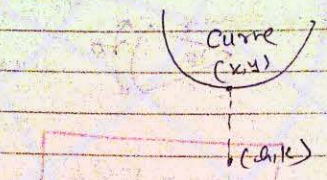 Curve
(x,y)
(h,k)